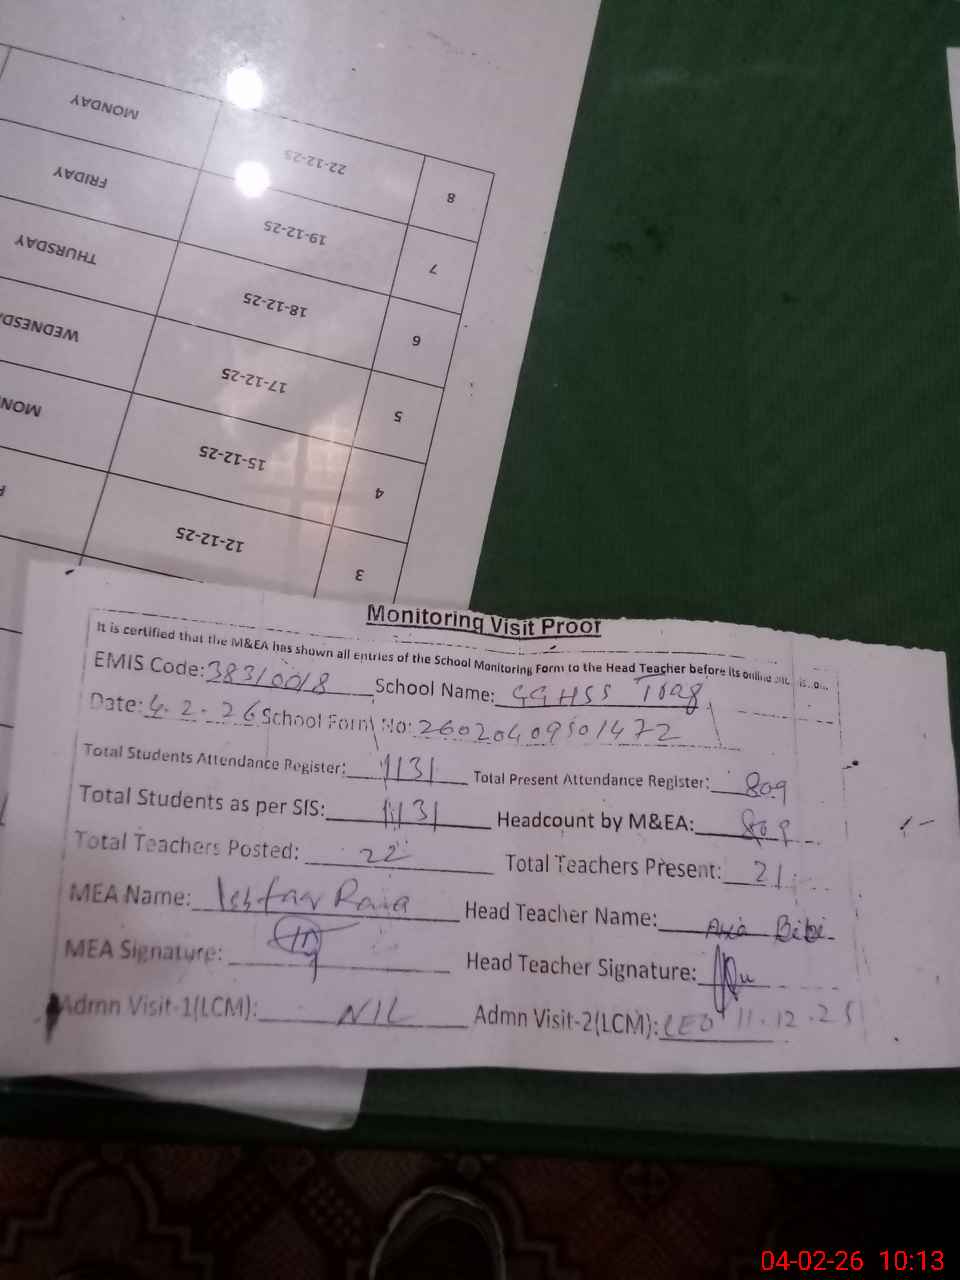 MONDAY 22-12-25 8
FRIDAY 19-12-25 7
THURSDAY 18-12-25 6
WEDNESDA 17-12-25 5
MON 15-12-25 4
12-12-25 3
Monitoring Visit Proof
It is certified that the M&EA has shown all entries of the School Monitoring Form to the Head Teacher before its online
EMIS Code: 38310018 School Name: GGHSS
Date: 4.2.26 School Form No: 26020409501472
Total Students Attendance Register: 1131 Total Present Attendance Register: 809
Total Students as per SIS: 1131 Headcount by M&EA: 809
Total Teachers Posted: 22 Total Teachers Present: 21
MEA Name: Head Teacher Name: Bibi
MEA Signature: Head Teacher Signature:
Admn Visit-1(LCM): NIL Admn Visit-2(LCM): 11.12.25
04-02-26 10:13